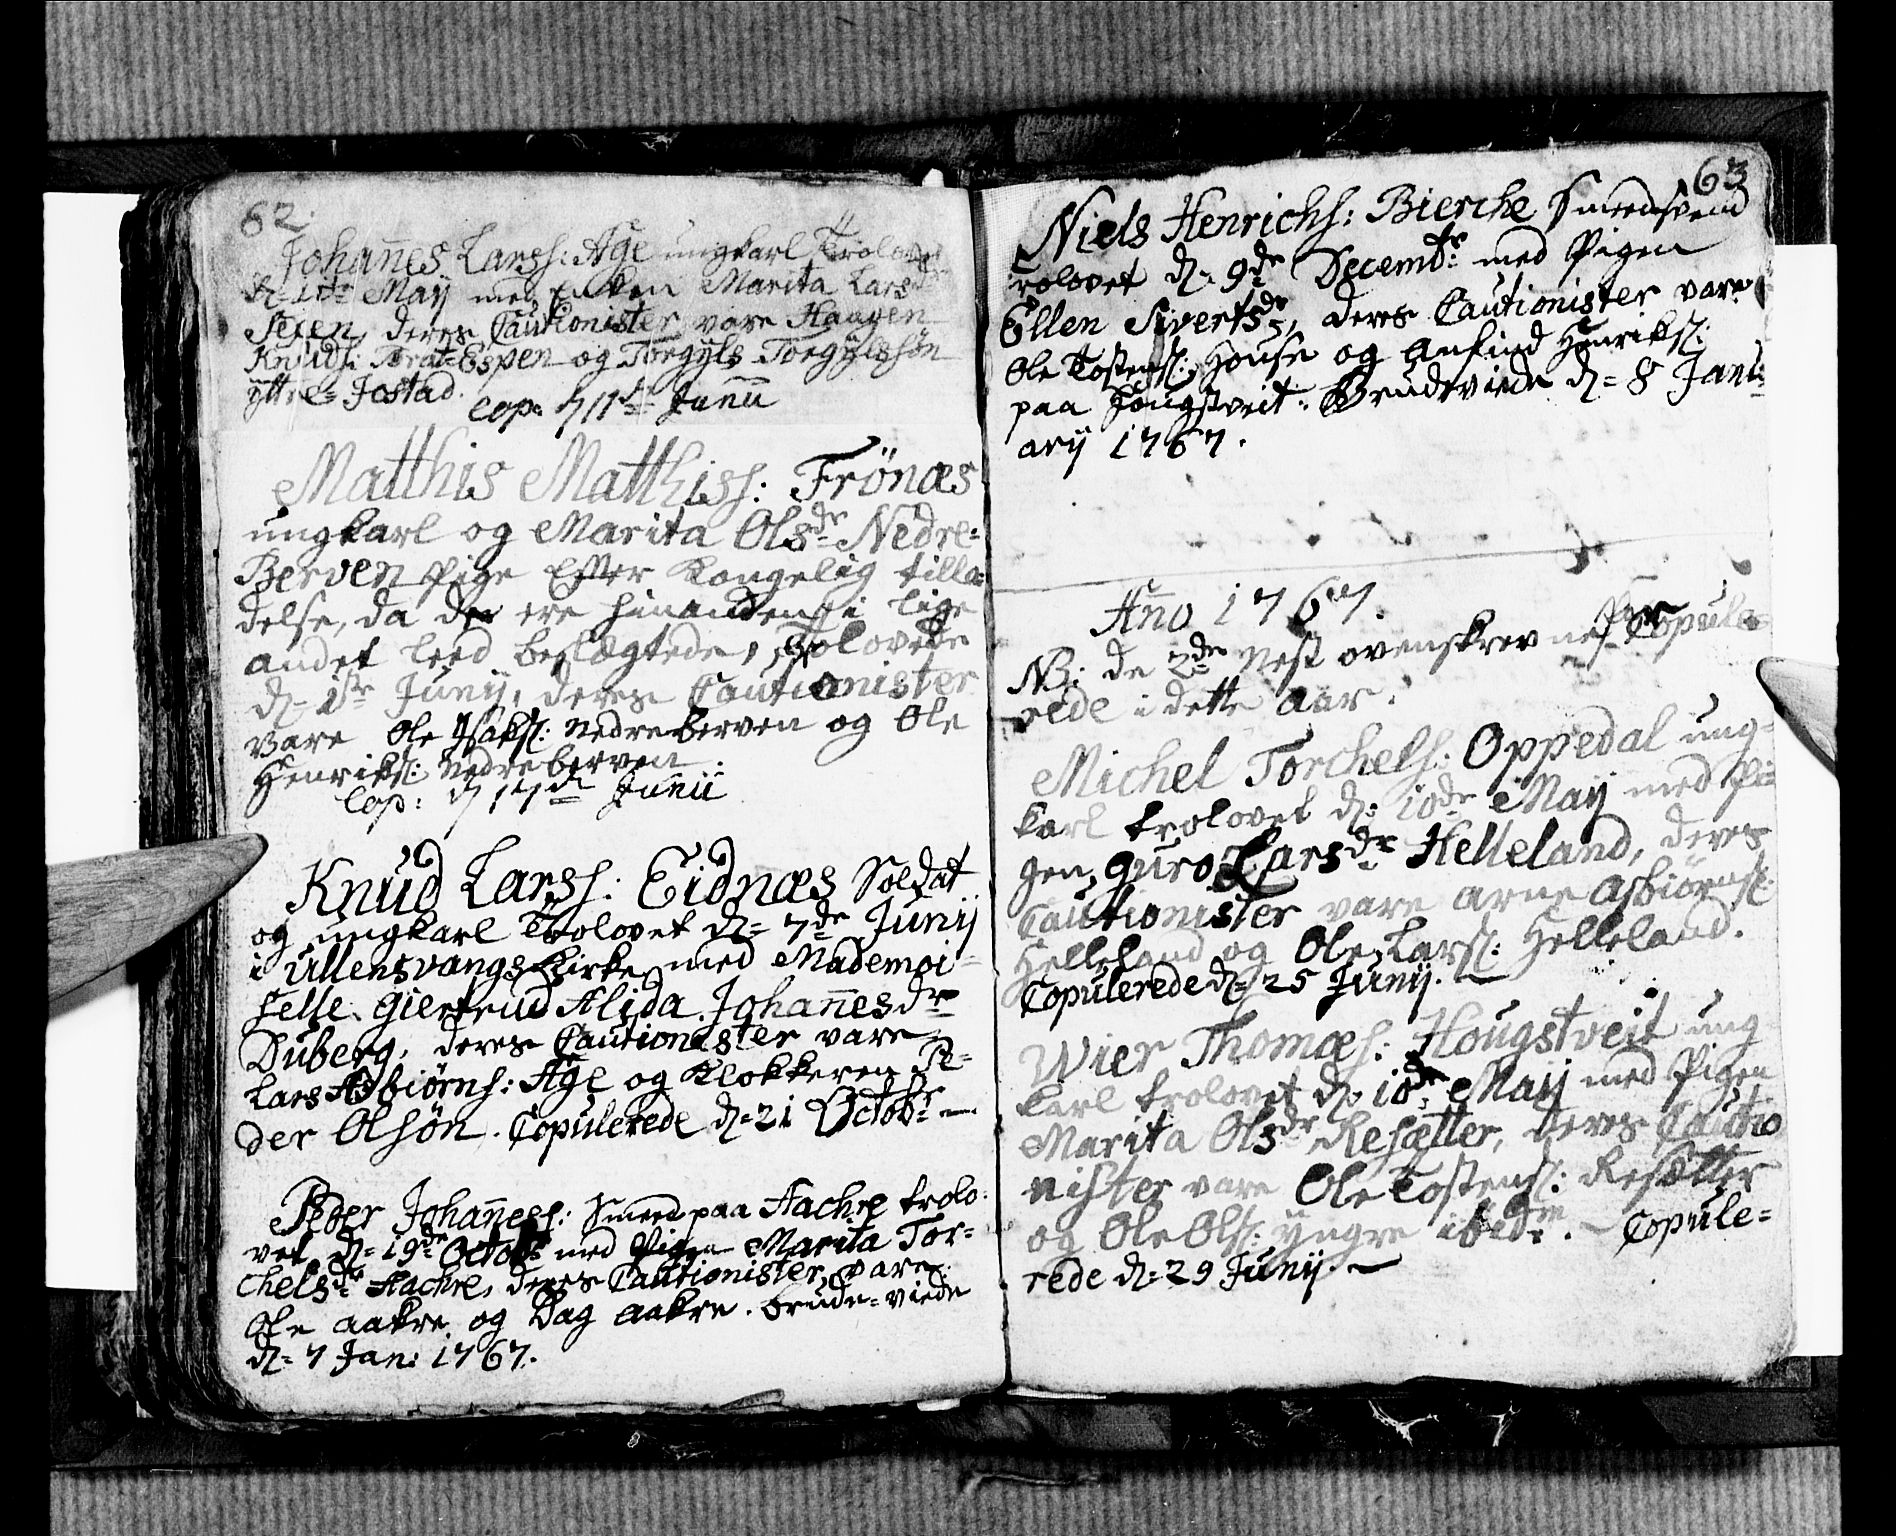 62.
Johañes Larss: Age ungkarl Trolovet
d. 1ste Maÿ med Enken Marita Larsdr
Sexen, deres Cautionister vare Haagen
Knuds: Brat-Espen og Torgÿls Torgÿlssön
ÿttre Jostad.
Cop: d 11te Junii
Matthis Matthiss: Frönæs
ungkarl og Marita Olsdr Nedre-
Berven Pige Efter Kongelig tilla-
delse, da de ere hinanden i lige
andet leed beslægtede, Trolovede
d. 1ste Junÿ, deres Cautionister
vare Ole Isaks: Nedreberven og Ole
Henriks: Nedreberven.
Cop: d 17de Junii
Knud Larss: Eidnæs Soldat
og ungkarl Trolovet d. 7de Junÿ
i Ullensvangs Kirke med Mademoi-
selle Giertrud Alida Johañesdr
Duberg, deres Cautionister vare
Lars Asbiörns: Age og Klokkeren Pe-
der Olsön. Copulerede d. 21 Octobr.
Peder Johañess: Smed paa Aachre trolo-
vet d. 19de Octobr med Pigen Marita Tor-
chelsdr Aachre, deres Cautionister vare
Ole Aakre og Dag Aakre. Brude-viede
d. 7 Jan: 1767.
63
Niels Henrichs: Bierche Smedsvend
trolovet d. 9de Decembr med Pigen
Ellen Sivertsdr, deres Cautionister vare
Ole Tostens: House og Anfind Henriks:
paa Hougstveit. Brudeviede d. 8 Janu-
arÿ 1767.
Año 1767.
NB: de 2de Nest ovenskrevne Par Copule-
rede i dette Aar.
Michel Torchels: Oppedal ung-
karl trolovet d. 10de Maÿ med Pi-
gen Guro Larsdr Helleland, deres
Cautionister vare Arne Asbiörns:
Helleland og Ole Lars: Helleland.
Copulerede d. 25 Junÿ.
Wier Thomæs: Hougstveit ung-
karl trolovet d. 10de Maÿ med Pigen
Marita Olsdr Resætter, deres Cautio
nister vare Ole Tostens: Resætter
og Ole Ols: ÿngre ibidm. Copule-
rede d. 29 Junÿ.